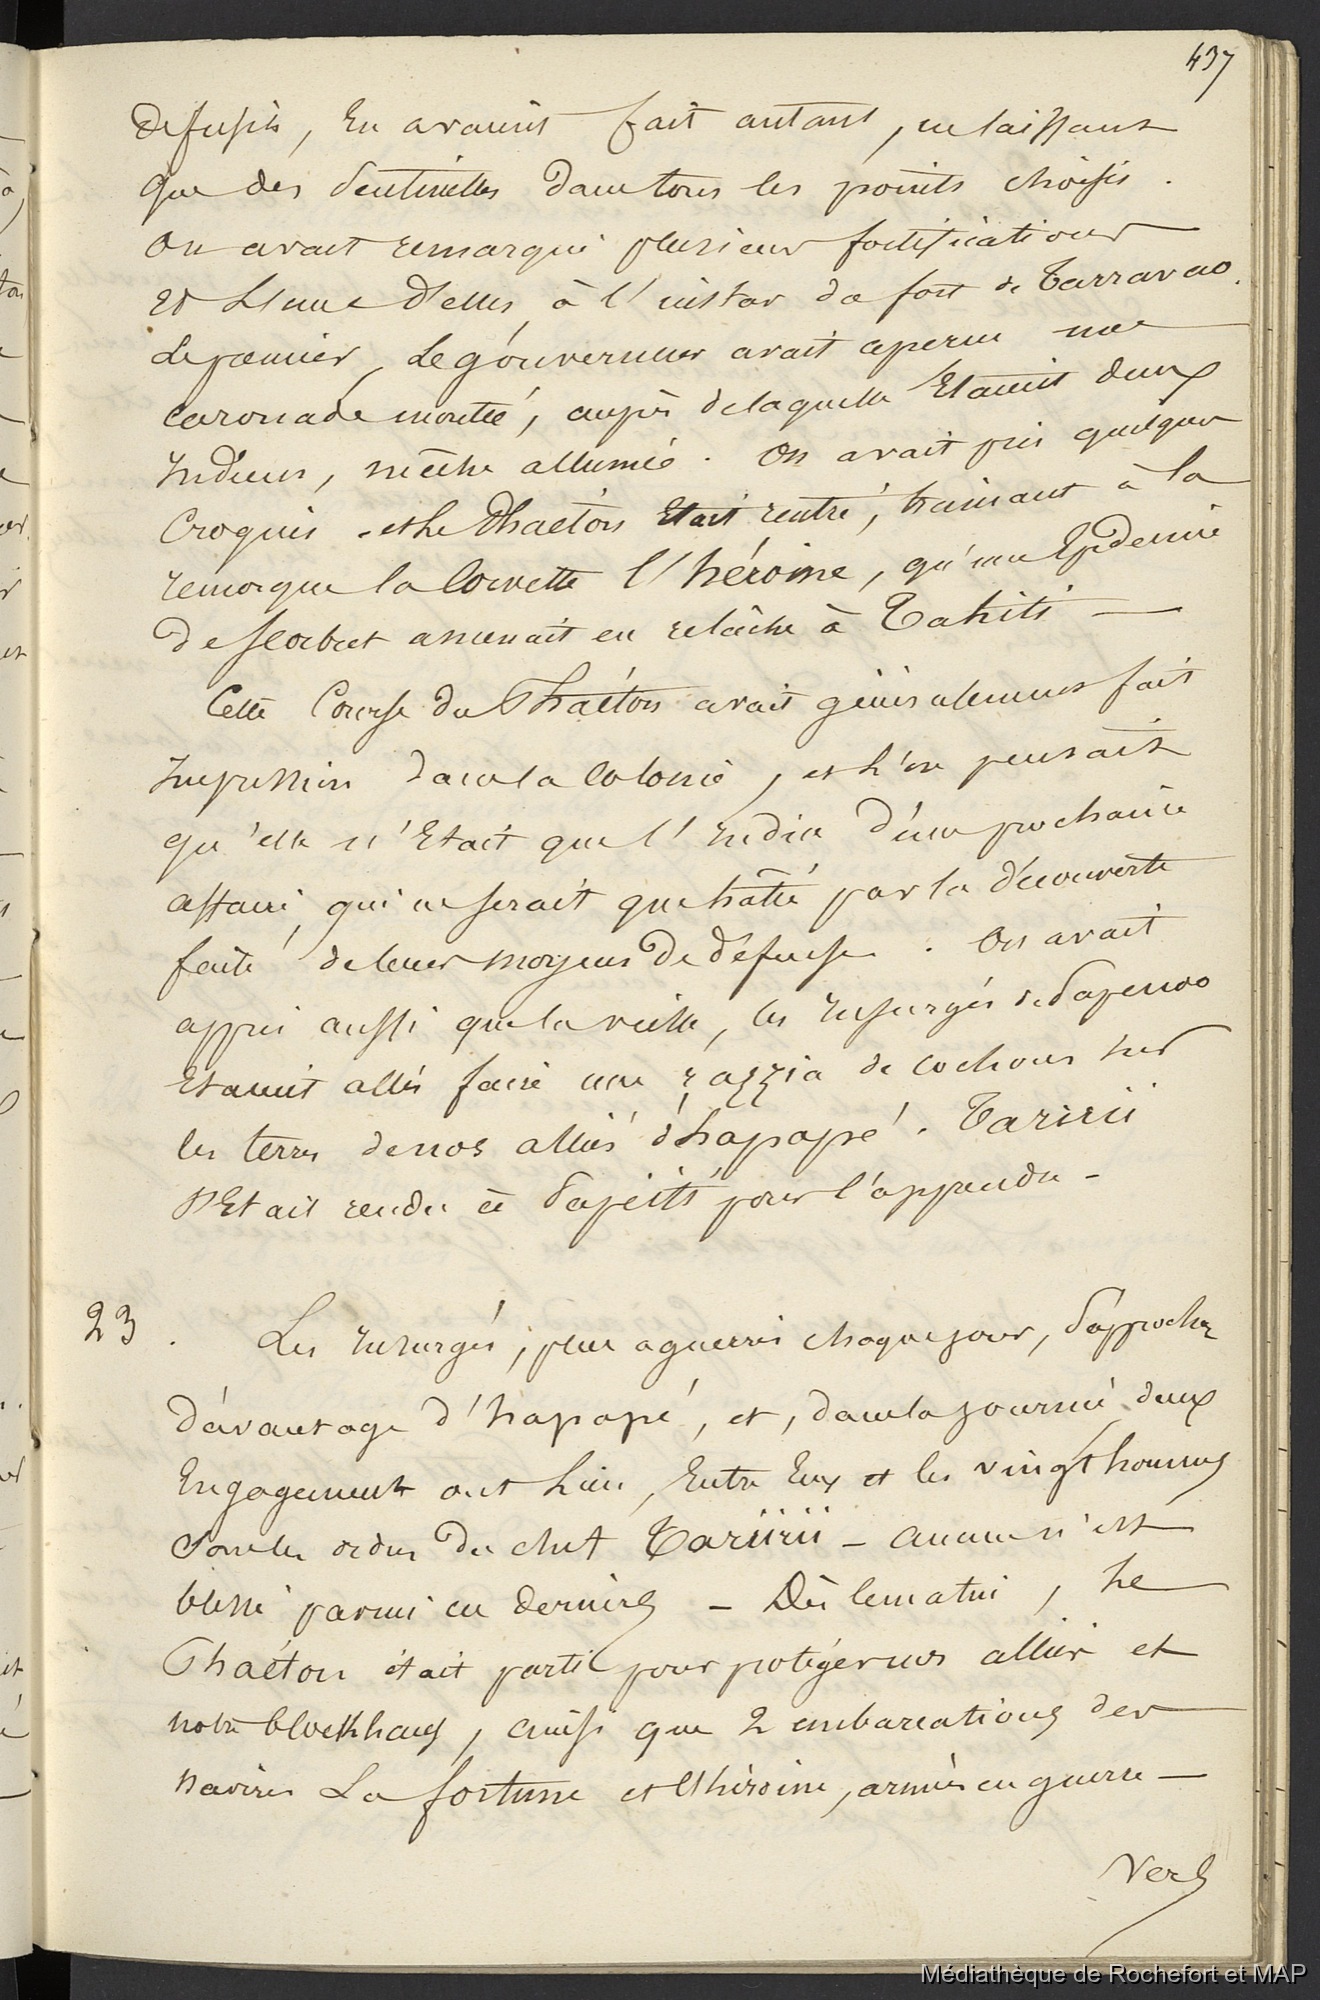 437
de fusils, en avaient fait autant, ne laissant
que des sentinelles dans tous les points choisis.
On avait remarqué plusieurs fortifications
et l'une d'elles, à l'instar du fort de Tarravao.
le premier, le gouverneur avait aperçu une
caronade montée, auprès de laquelle étaient deux
Indiens, mèche allumée. On avait pris quelques
croquis et le Phaéton était rentré, traînant à la
remorque la corvette l'héroïne, qu'une épidemie
de scorbut amenait en relâche à Tahiti —
Cette course du Phaéton avait généralement fait
impression dans la colonie, et l'on pensait
qu'elle n'était que l'indice d'une prochaine
affaire, qui ne serait que hâtée par la découverte
faite de leurs moyens de défense. On avait
appris aussi que la veille, les insurgés de Papenoo
étaient allés faire une razzia de cochons sur
les terres de nos alliés d'hapapé. Tariirii
s'était rendu à Papeïti pour l'apprendre -
23. Les insurgés, plus aguerris chaque jour, s'approchent
d'avantage d'hapapé, et, dans la journée, deux
engagements ont lieu, entre eux et les vingt hommes
sous les ordres du chef Tariirii - aucun n'est
blessé parmi ces derniers - Dès le matin, le
Phaéton était parti pour protéger nos alliés et
notre blockhaus, ainsi que 2 embarcations des
navires La fortune et l'héroïne, armées en guerre —
Vers
Médiathèque de Rochefort et MAP